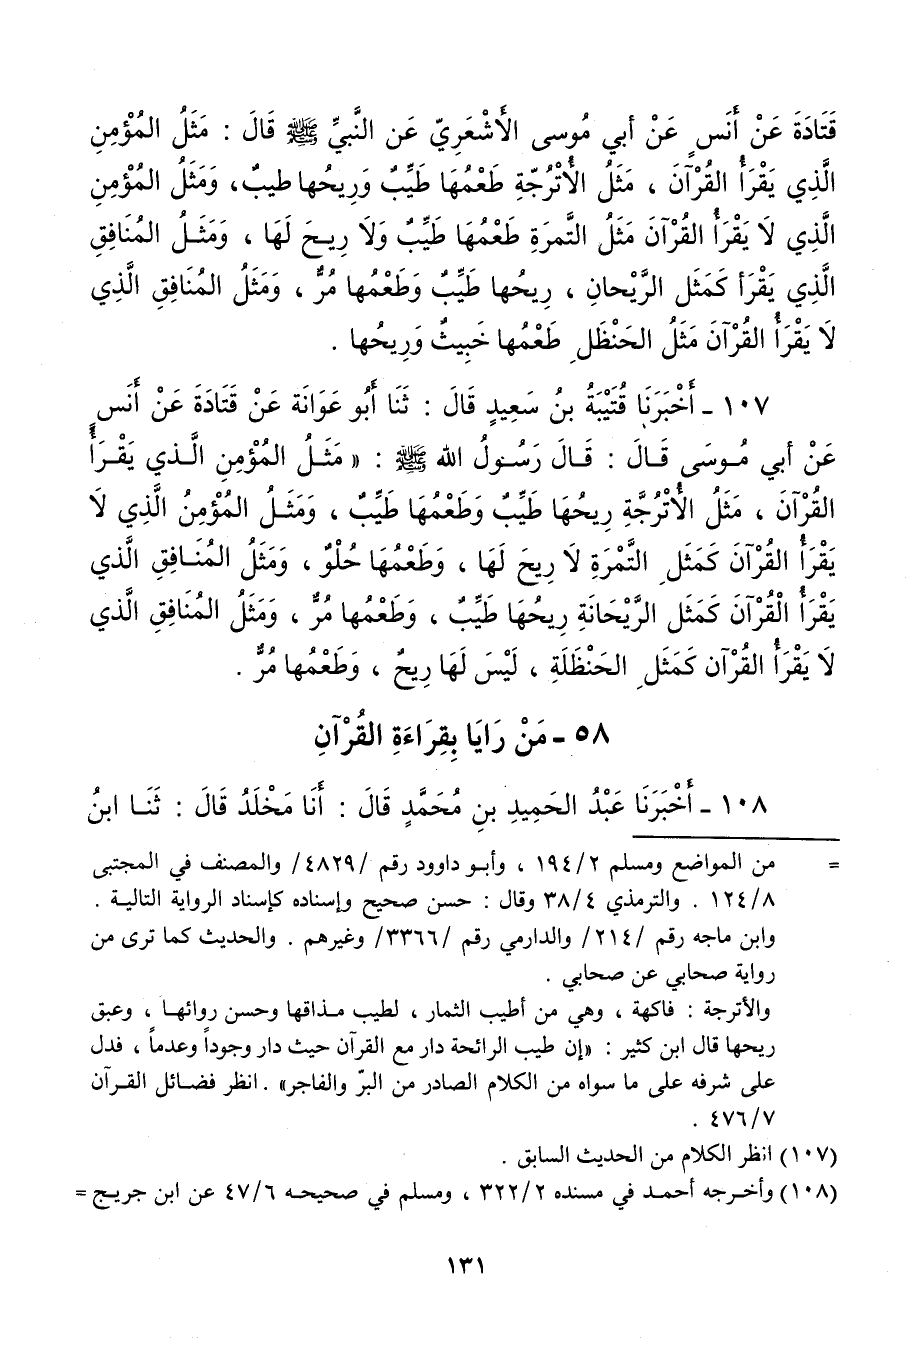 قَتَادَةَ عَنْ أَنَسٍ عَنْ أبي مُوسى الأَشْعَرِيّ عَن النَّبيِّ ﷺ قَالَ : مَثَلُ المُؤْمِنِ
الَّذِي يَقْرَأُ القُرْآنَ ، مَثَلُ الأُتْرُجّةِ طَعْمُهَا طَيِّبٌ وَرِيحُها طيبٌ، وَمَثَلُ المُؤْمِنِ
الَّذِي لَا يَقْرَأُ القُرْآنَ مَثَلُ التَّمرَةِ طَعْمُهَا طَيِّبٌ وَلَا رِيحَ لَهَا ، وَمَثَلُ المُنَافِقِ
الَّذِي يَقْرَأ كَمَثَلِ الرَّيْحانِ ، رِيحُها طَيِّبٌ وَطَعْمُها مُرٌّ ، وَمَثَلُ المُنَافِقِ الَّذِي
لَا يَقْرَأُ القُرْآنَ مَثَلُ الحَنْظَلِ طَعْمُها خَبِيثٌ وَرِيحُها .
١٠٧ - أَخْبَرَنَا قُتَيْبَةُ بنُ سَعِيدٍ قَالَ : ثَنَا أَبُو عَوَانَة عَنْ قَتَادَةَ عَنْ أَنَسٍ
عَنْ أبي مُوسَى قَالَ : قَالَ رَسُولُ الله ﷺ : « مَثَلُ المُؤْمِنِ الَّذي يَقْرَأُ
القُرْآنَ ، مَثَلُ الأُتْرُجَّةِ رِيحُهَا طَيِّبٌ وَطَعْمُهَا طَيِّبٌ ، وَمَثَلُ المُؤْمِنُ الَّذِي لَا
يَقْرَأُ القُرْآنَ كَمَثَلِ التَّمْرَةِ لَا رِيحَ لَهَا ، وَطَعْمُهَا حُلْوٌ ، وَمَثَلُ المُنَافِقِ الَّذي
يَقْرَأُ الْقُرْآنَ كَمَثَلِ الرَّيْحَانَةِ رِيحُهَا طَيِّبٌ ، وَطَعْمُها مُرٌّ ، وَمَثَلُ المُنَافِقِ الَّذي
لَا يَقْرَأُ القُرْآن كَمَثَلِ الحَنْظَلَةِ ، لَيْسَ لَهَا رِيحٌ ، وَطَعْمُها مُرٌّ .
٥٨ - مَنْ رَايَا بِقِرَاءَةِ القُرْآنِ
١٠٨ - أَخْبَرَنَا عَبْدُ الحَمِيدِ بنِ مُحَمَّدٍ قَالَ : أَنَا مَخْلَدُ قَالَ : ثَنَا ابنُ
= من المواضع ومسلم ١٩٤/٢ ، وأبو داوود رقم /٤٨٢٩/ والمصنف في المجتبى
١٢٤/٨ . والترمذي ٣٨/٤ وقال : حسن صحيح وإسناده كإسناد الرواية التالية .
وابن ماجه رقم /٢١٤/ والدارمي رقم /٣٣٦٦/ وغيرهم . والحديث كما ترى من
رواية صحابي عن صحابي .
والأترجة : فاكهة ، وهي من أطيب الثمار ، لطيب مذاقها وحسن روائها ، وعبق
ريحها قال ابن كثير : «إن طيب الرائحة دار مع القرآن حيث دار وجوداً وعدماً ، فدل
على شرفه على ما سواه من الكلام الصادر من البرّ والفاجر» . انظر فضائل القرآن
٤٧٦/٧ .
(١٠٧) انظر الكلام من الحديث السابق .
(١٠٨) وأخرجه أحمد في مسنده ٣٢٢/٢ ، ومسلم في صحيحه ٤٧/٦ عن ابن جريج =
١٣١